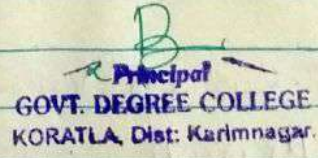 Principal
GOVT. DEGREE COLLEGE
KORATLA, Dist: Karimnagar.